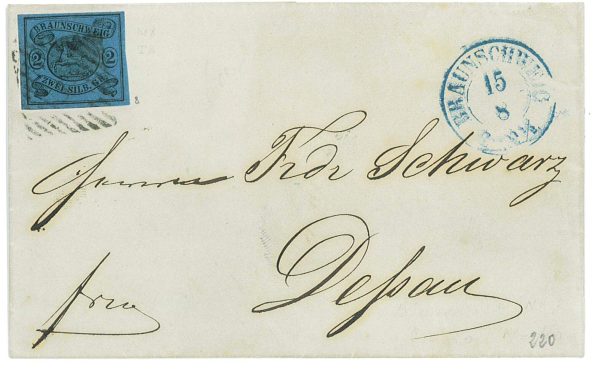 BRAUNSCHWEIG
2 2
ZWEI SILB. GR.
BRAUNSCHWEIG
15
8
Herrn Frdr Schwarz
Dessau
frei
220